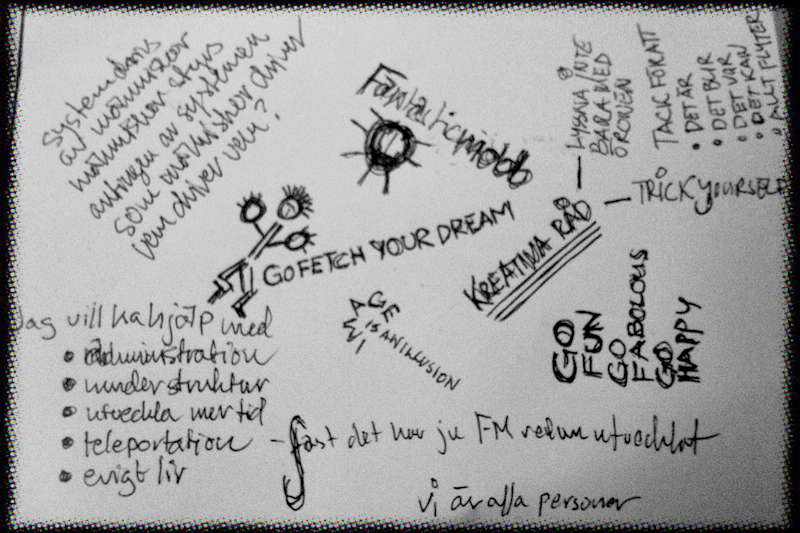 Systemdrivs
av människor
människor styrs
antingen av systemen
som människor driver
vem driver vem?
Fantasticmobb
LYSSNA INTE
BARA MED
ÖRONEN
TACK FÖR ATT
• DET ÄR
• DET BLIR
• DET VAR
• DET KAN
• ALLT FLYTER
TRICK YOURSELF
KREATIVA RÅD
GO FETCH YOUR DREAM
AGE
IS AN ILLUSION
GO
FUN
GO
FABOLOUS
GO
HAPPY
Jag vill ha hjälp med
• administration
• understruktur
• utveckla mer tid
• teleportation – fast det har ju FM redan utvecklat
• evigt liv
vi är alla personer